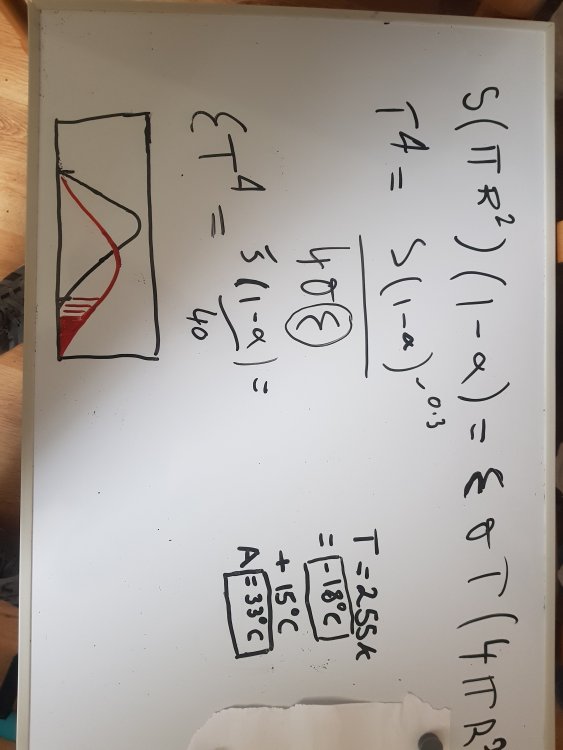 S(πR²)(1-α) = ε σ T (4πR²
T4 = S(1-α) ~0.3
4σε
εT4 = S(1-α) =
4σ
T = 255K
= -18°C
+ 15°C
Δ = 33°C